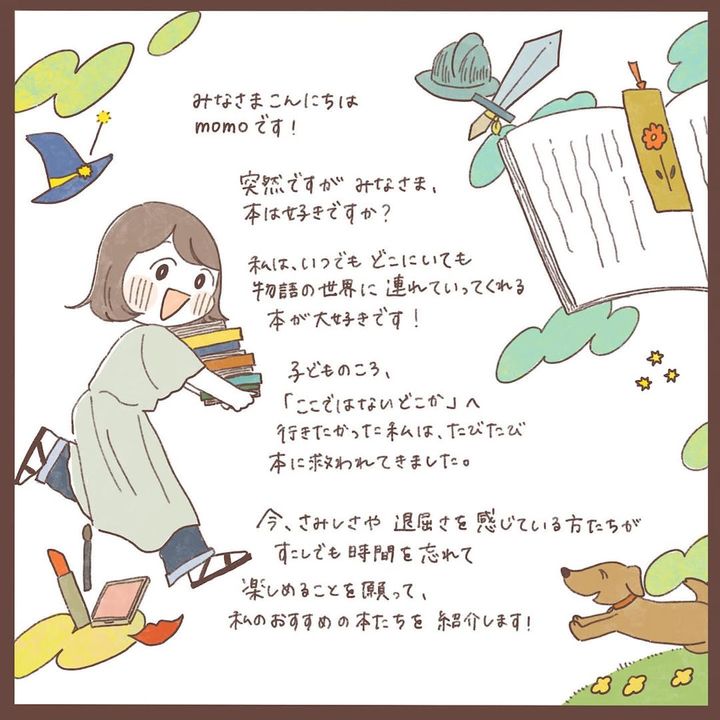 みなさまこんにちは
momoです!
突然ですが みなさま、
本は好きですか?
私は、いつでも どこにいても
物語の世界に 連れていってくれる
本が大好きです!
子どものころ、
「ここではないどこか」へ
行きたかった私は、たびたび
本に救われてきました。
今、さみしさや 退屈さを感じている方たちが
すこしでも時間を忘れて
楽しめることを願って、
私のおすすめの本たちを 紹介します!